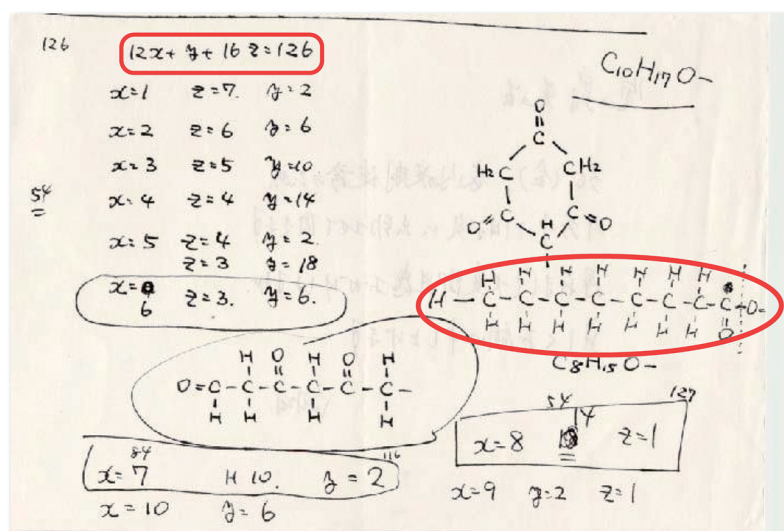 126
12x + y + 16 z = 126
C10H17O-
x=1 z=7 y=2
x=2 z=6 y=6
x=3 z=5 y=10
54
x=4 z=4 y=14
x=5 z=4 y=2
z=3 y=18
x=6 z=3. y=6.
O
C
H2 C C H2
O C C O
C
H
H H H H H H H
H - C - C - C - C - C - C - C - C - O -
H H H H H H H O
C8H15O-
H O H O H
O = C - C - C - C - C - C -
H H H H
54 4 127
x=8 z=1
84 116
x=7 H 10. y=2
x=9 y=2 z=1
x=10 y=6